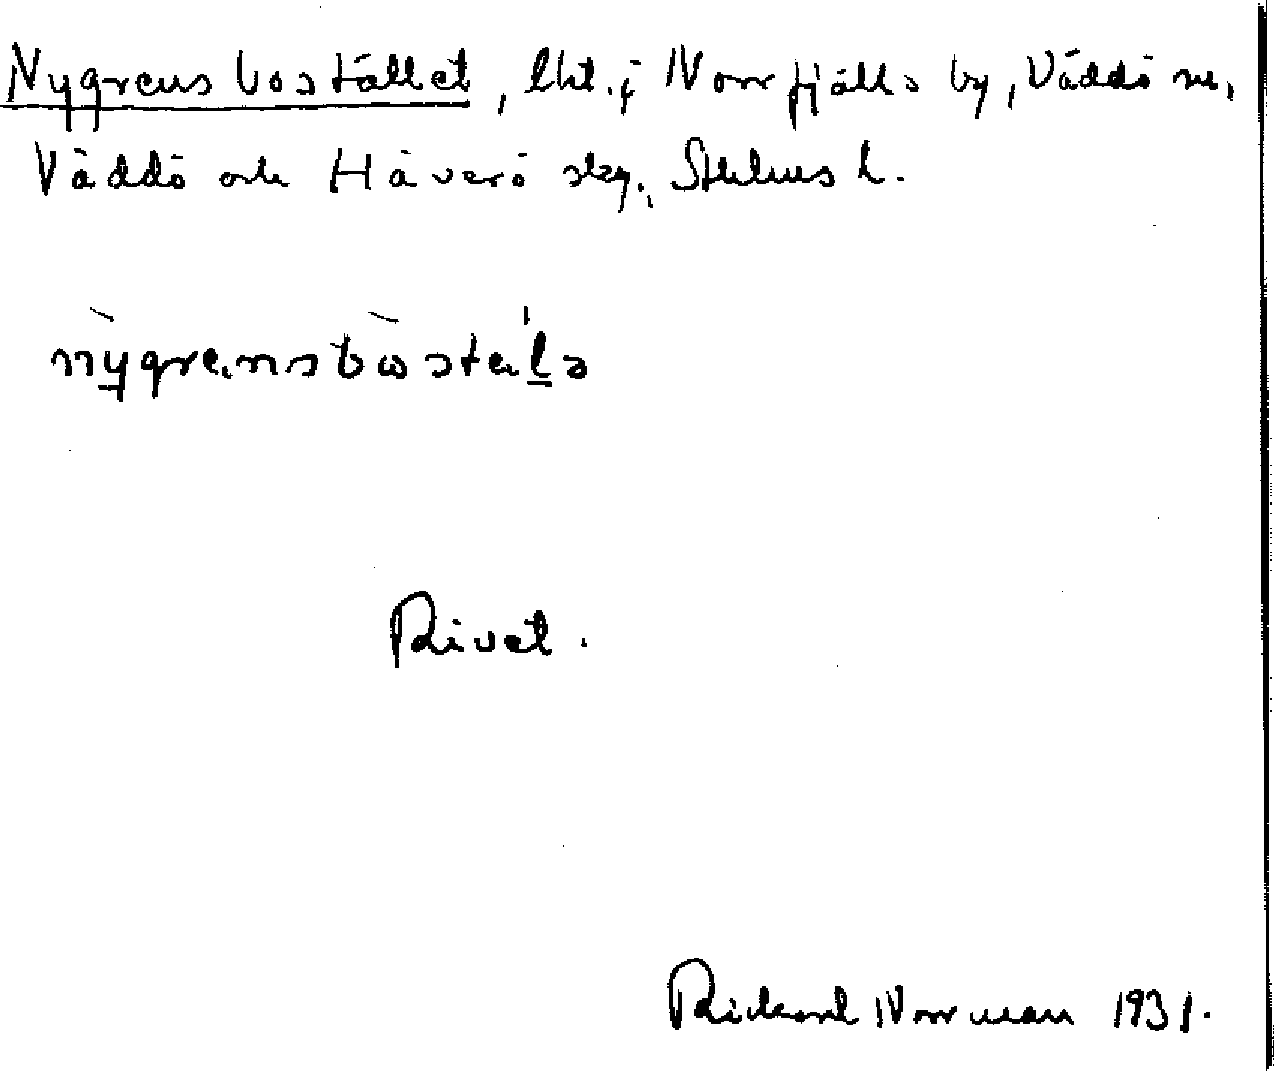 Nygrens bostället, lht. i Norrfjälls by, Väddö sn,
Väddö och Häverö skg., Sthlms l.
Rivet.
Rickard Norrman 1931.